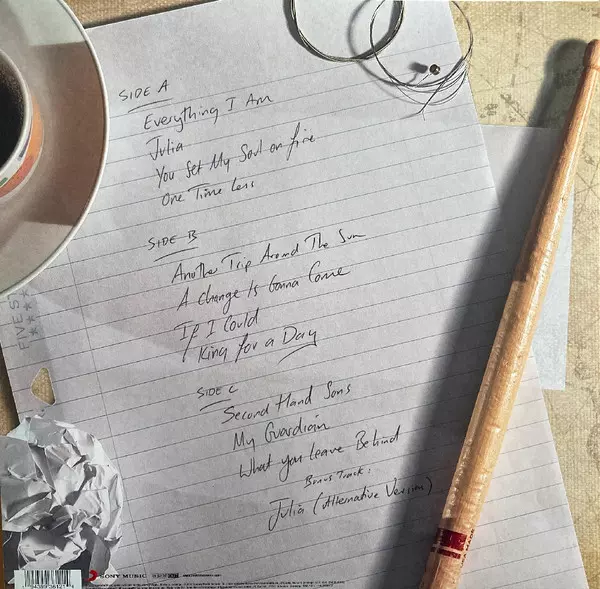 SIDE A
Everything I Am
Julia
You Set My Soul on fire
One Time Less
SIDE B
Another Trip Around The Sun
A Change Is Gonna Come
If I Could
King for a Day
SIDE C
Second Hand Sons
My Guardian
What you leave Behind
Bonus Track:
Julia (Alternative Version)
FIVE S
SONY MUSIC